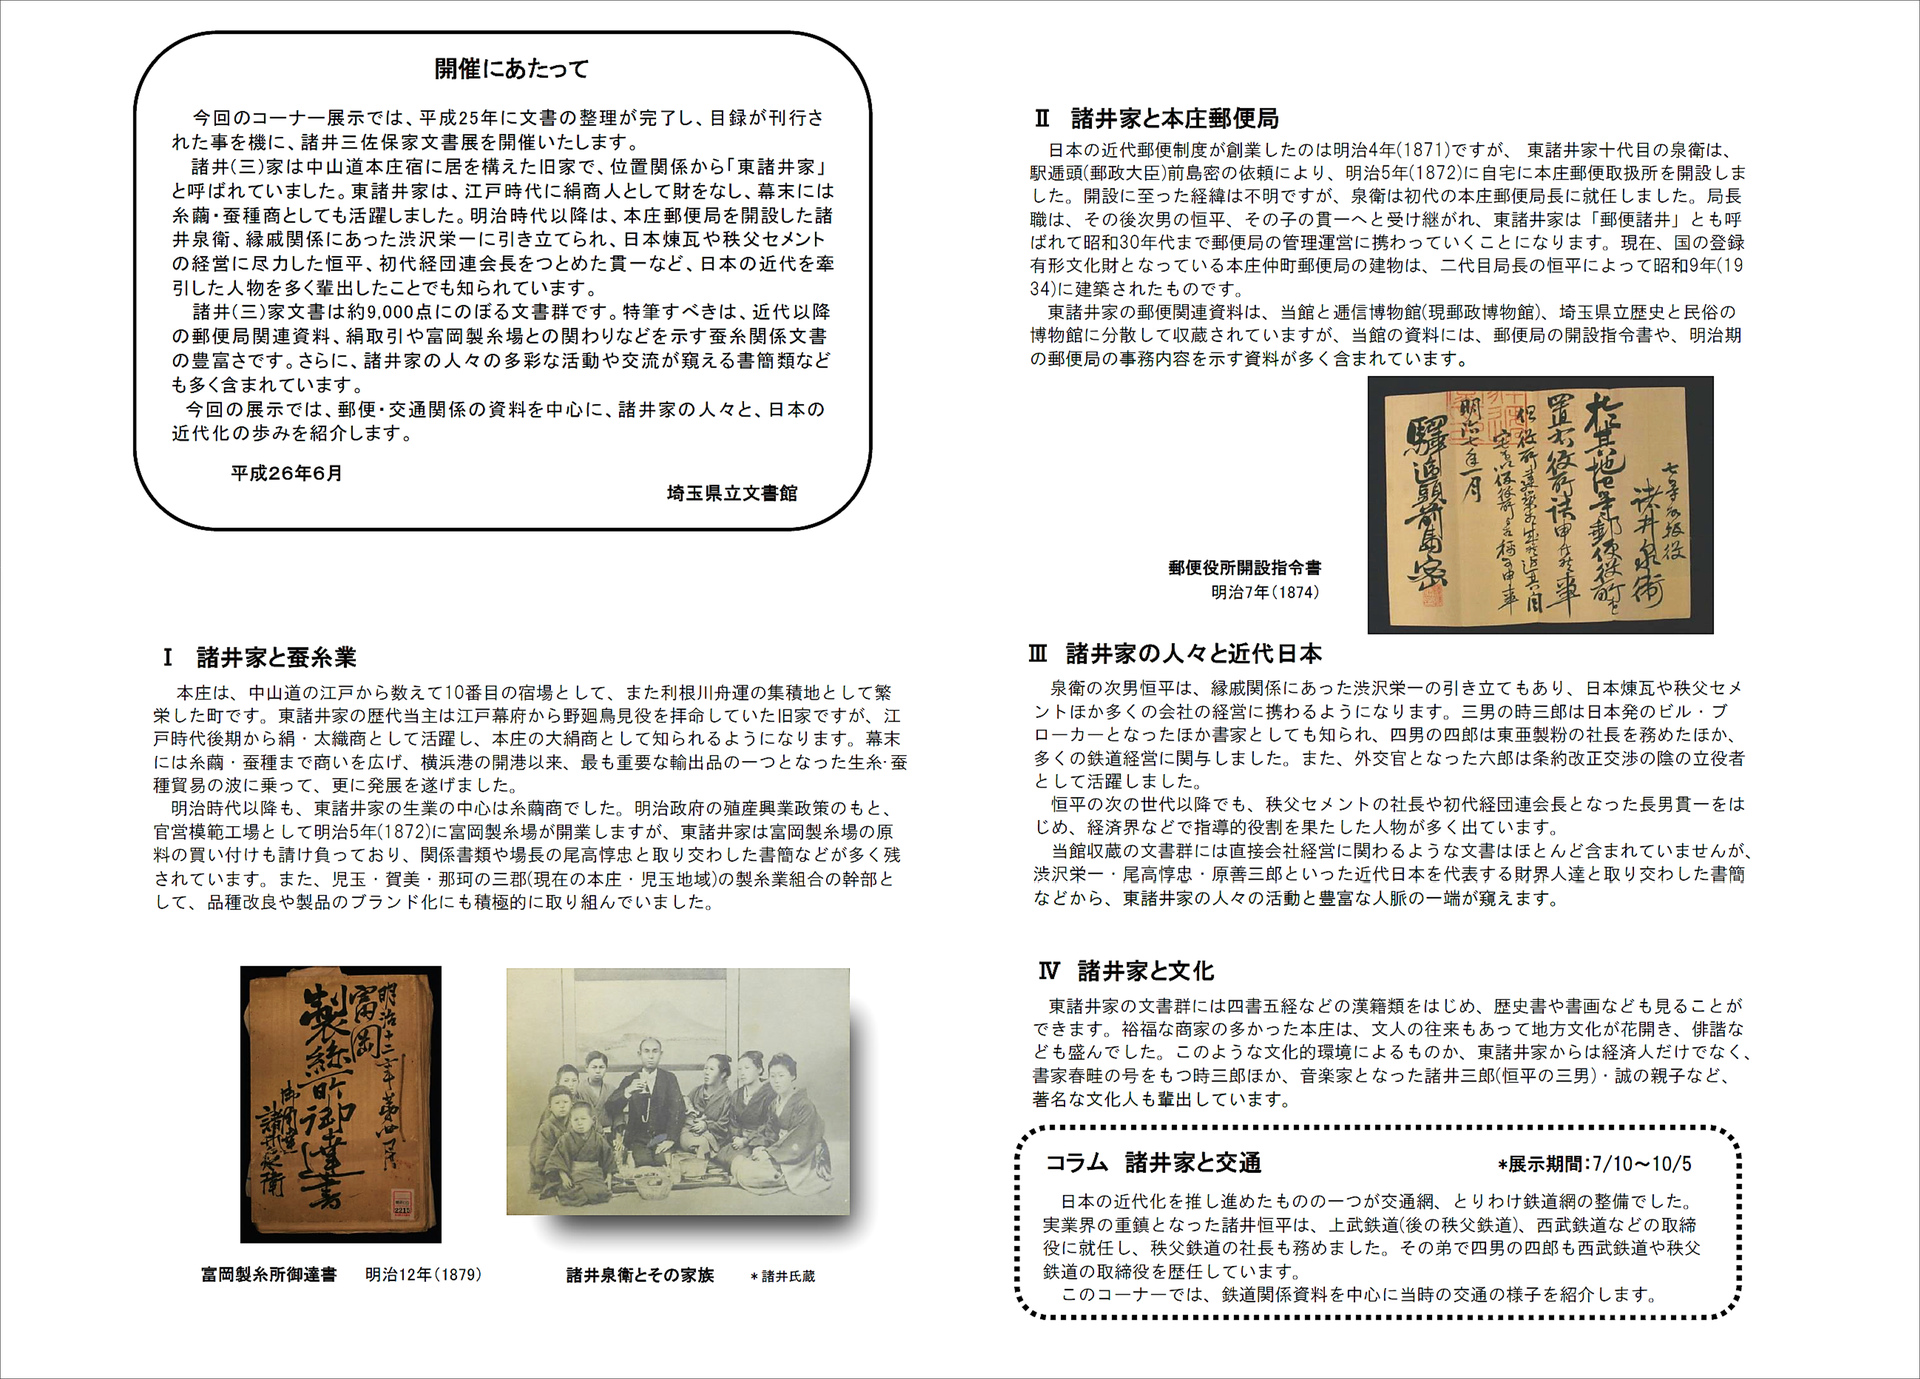 開催にあたって
今回のコーナー展示では、平成25年に文書の整理が完了し、目録が刊行さ
れた事を機に、諸井三佐保家文書展を開催いたします。
諸井(三)家は中山道本庄宿に居を構えた旧家で、位置関係から「東諸井家」
と呼ばれていました。東諸井家は、江戸時代に絹商人として財をなし、幕末には
糸繭・蚕種商としても活躍しました。明治時代以降は、本庄郵便局を開設した諸
井泉衛、縁戚関係にあった渋沢栄一に引き立てられ、日本煉瓦や秩父セメント
の経営に尽力した恒平、初代経団連会長をつとめた貫一など、日本の近代を牽
引した人物を多く輩出したことでも知られています。
諸井(三)家文書は約9,000点にのぼる文書群です。特筆すべきは、近代以降
の郵便局関連資料、絹取引や富岡製糸場との関わりなどを示す蚕糸関係文書
の豊富さです。さらに、諸井家の人々の多彩な活動や交流が窺える書簡類など
も多く含まれています。
今回の展示では、郵便・交通関係の資料を中心に、諸井家の人々と、日本の
近代化の歩みを紹介します。
平成26年6月
埼玉県立文書館
Ⅰ 諸井家と蚕糸業
本庄は、中山道の江戸から数えて10番目の宿場として、また利根川舟運の集積地として繁
栄した町です。東諸井家の歴代当主は江戸幕府から野廻鳥見役を拝命していた旧家ですが、江
戸時代後期から絹・太織商として活躍し、本庄の大絹商として知られるようになります。幕末
には糸繭・蚕種まで商いを広げ、横浜港の開港以来、最も重要な輸出品の一つとなった生糸・蚕
種貿易の波に乗って、更に発展を遂げました。
明治時代以降も、東諸井家の生業の中心は糸繭商でした。明治政府の殖産興業政策のもと、
官営模範工場として明治5年(1872)に富岡製糸場が開業しますが、東諸井家は富岡製糸場の原
料の買い付けも請け負っており、関係書類や場長の尾高惇忠と取り交わした書簡などが多く残
されています。また、児玉・賀美・那珂の三郡(現在の本庄・児玉地域)の製糸業組合の幹部と
して、品種改良や製品のブランド化にも積極的に取り組んでいました。
明治十二年第四月
富岡
製絲所御達書
御用達
諸井泉衛
2211
富岡製糸所御達書 明治12年(1879)
諸井泉衛とその家族 *諸井氏蔵
Ⅱ 諸井家と本庄郵便局
日本の近代郵便制度が創業したのは明治4年(1871)ですが、 東諸井家十代目の泉衛は、
駅逓頭(郵政大臣)前島密の依頼により、明治5年(1872)に自宅に本庄郵便取扱所を開設しま
した。開設に至った経緯は不明ですが、泉衛は初代の本庄郵便局長に就任しました。局長
職は、その後次男の恒平、その子の貫一へと受け継がれ、東諸井家は「郵便諸井」とも呼
ばれて昭和30年代まで郵便局の管理運営に携わっていくことになります。現在、国の登録
有形文化財となっている本庄仲町郵便局の建物は、二代目局長の恒平によって昭和9年(19
34)に建築されたものです。
東諸井家の郵便関連資料は、当館と逓信博物館(現郵政博物館)、埼玉県立歴史と民俗の
博物館に分散して収蔵されていますが、当館の資料には、郵便局の開設指令書や、明治期
の郵便局の事務内容を示す資料が多く含まれています。
諸井泉衛
於其地郵便役所を
置右役所詰申付候事
明治七年一月
驛逓頭前島密
郵便役所開設指令書
明治7年(1874)
Ⅲ 諸井家の人々と近代日本
泉衛の次男恒平は、縁戚関係にあった渋沢栄一の引き立てもあり、日本煉瓦や秩父セメ
ントほか多くの会社の経営に携わるようになります。三男の時三郎は日本発のビル・ブ
ローカーとなったほか書家としても知られ、四男の四郎は東亜製粉の社長を務めたほか、
多くの鉄道経営に関与しました。また、外交官となった六郎は条約改正交渉の陰の立役者
として活躍しました。
恒平の次の世代以降でも、秩父セメントの社長や初代経団連会長となった長男貫一をは
じめ、経済界などで指導的役割を果たした人物が多く出ています。
当館収蔵の文書群には直接会社経営に関わるような文書はほとんど含まれていませんが、
渋沢栄一・尾高惇忠・原善三郎といった近代日本を代表する財界人達と取り交わした書簡
などから、東諸井家の人々の活動と豊富な人脈の一端が窺えます。
Ⅳ 諸井家と文化
東諸井家の文書群には四書五経などの漢籍類をはじめ、歴史書や書画なども見ることが
できます。裕福な商家の多かった本庄は、文人の往来もあって地方文化が花開き、俳諧な
ども盛んでした。このような文化的環境によるものか、東諸井家からは経済人だけでなく、
書家春畦の号をもつ時三郎ほか、音楽家となった諸井三郎(恒平の三男)・誠の親子など、
著名な文化人も輩出しています。
コラム 諸井家と交通 *展示期間:7/10～10/5
日本の近代化を推し進めたものの一つが交通網、とりわけ鉄道網の整備でした。
実業界の重鎮となった諸井恒平は、上武鉄道(後の秩父鉄道)、西武鉄道などの取締
役に就任し、秩父鉄道の社長も務めました。その弟で四男の四郎も西武鉄道や秩父
鉄道の取締役を歴任しています。
このコーナーでは、鉄道関係資料を中心に当時の交通の様子を紹介します。